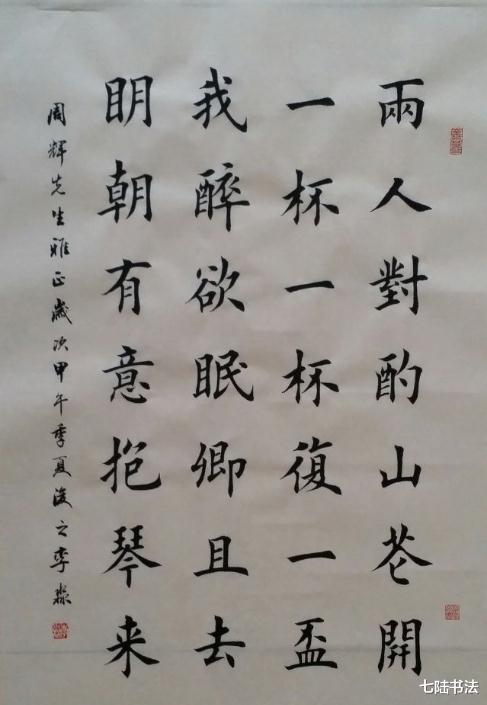 兩人對酌山花開
一杯一杯復一盃
我醉欲眠卿且去
眀朝有意抱琴来
周輝先生雅正歲次甲午季夏之李淼
七陆书法